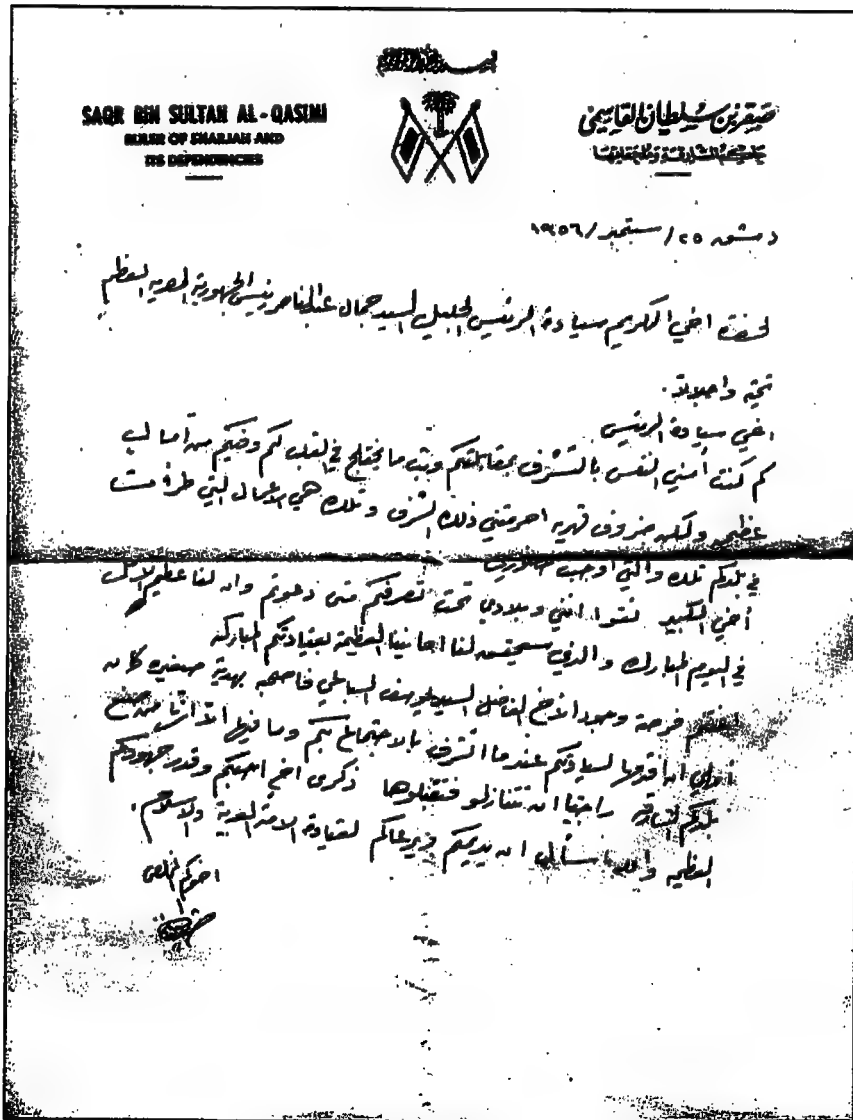 بسم الله الرحمن الرحيم
SAQR BIN SULTAN AL-QASIMI
RULER OF SHARJAH AND
ITS DEPENDENCIES
صقر بن سلطان القاسمي
حاكم الشارقة وملحقاتها
دمشق ٢٥/ سبتمبر/ ١٩٥٦
لحضرة اخي الكريم سيادة الرئيس الجليل السيد جمال عبد الناصر رئيس الجمهورية المصرية المعظم
تحية واجلالا.
اخي سيادة الرئيس
كم كنت أمني النفس بالتشرف بمقابلتكم وبث ما يختلج في القلب لكم وفيكم من آمال
عظيمه ولكن ضروف قهريه احرمتني ذلك الشرف وتلك هي الاعمال التي طرأت
في بلدكم تلك والتي اوجبت
أخي الكبير ثقوا انني وبلادي تحت تصرفكم متى دعوتم وان لنا عظيم الامل
في اليوم المبارك والذي سيحقق لنا امانينا العظيمة بقيادتكم المباركه
فرصة وجود الأخ الفاضل السيد يوسف السباعي بهدية صغيره كان
أملي ان اقدمها لسيادتكم عندما اتشرف بالاجتماع بكم وما فيها الا اثرا من صنع
بلدكم الشارقه راجيا ان تتنازلو فتقبلوها ذكرى اخ احبكم وقدر جهودكم
العظيمه والله اسأل ان يديمكم ويرعاكم لقيادة الامة العربية والاسلام.
اخوكم المخلص